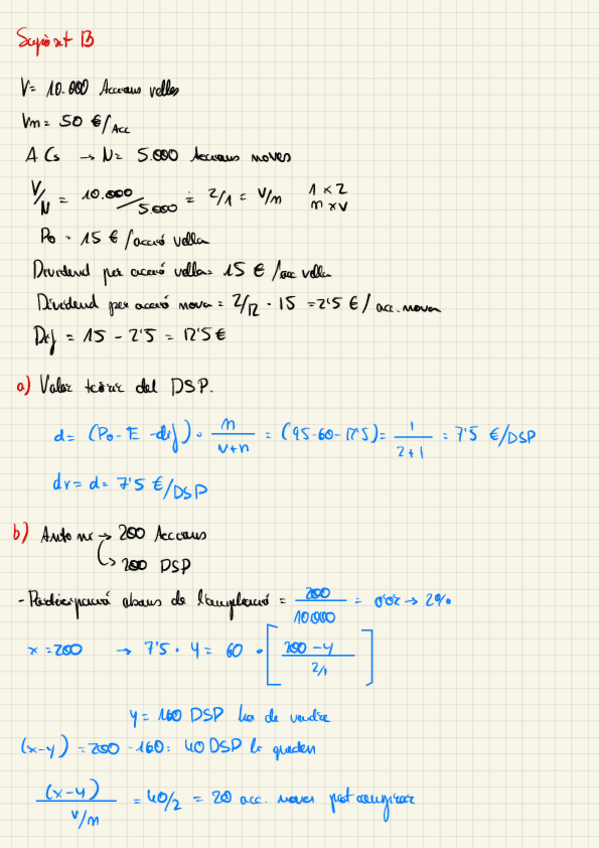 Supòsit B
V = 10.000 Accions velles
Vm = 50 €/Acc
A Cs → N = 5.000 Accions noves
V/N = 10.000/5.000 = 2/1 = V/n 1 x 2
n x v
Po = 15 €/acció vella
Dividend per acció vella = 15 €/acc vella
Dividend per acció nova = 2/12 · 15 = 2'5 €/acc. nova
Dif = 15 - 2'5 = 12'5 €
a) Valor teòric del DSP.
d = (Po - E - dif) · n/v+n = (95-60-12'5) = 1/2+1 = 7'5 €/DSP
dv = d = 7'5 €/DSP
b) Antoni → 200 Accions
↳ 200 DSP
- Participació abans de l'ampliació = 200/10000 = 0'02 → 2%
x = 200 → 7'5 · y = 60 · [200-y / 2/1]
y = 160 DSP ha de vendre
(x-y) = 200 - 160 = 40 DSP li queden
(x-y)/v/n = 40/2 = 20 acc. noves pot comprar